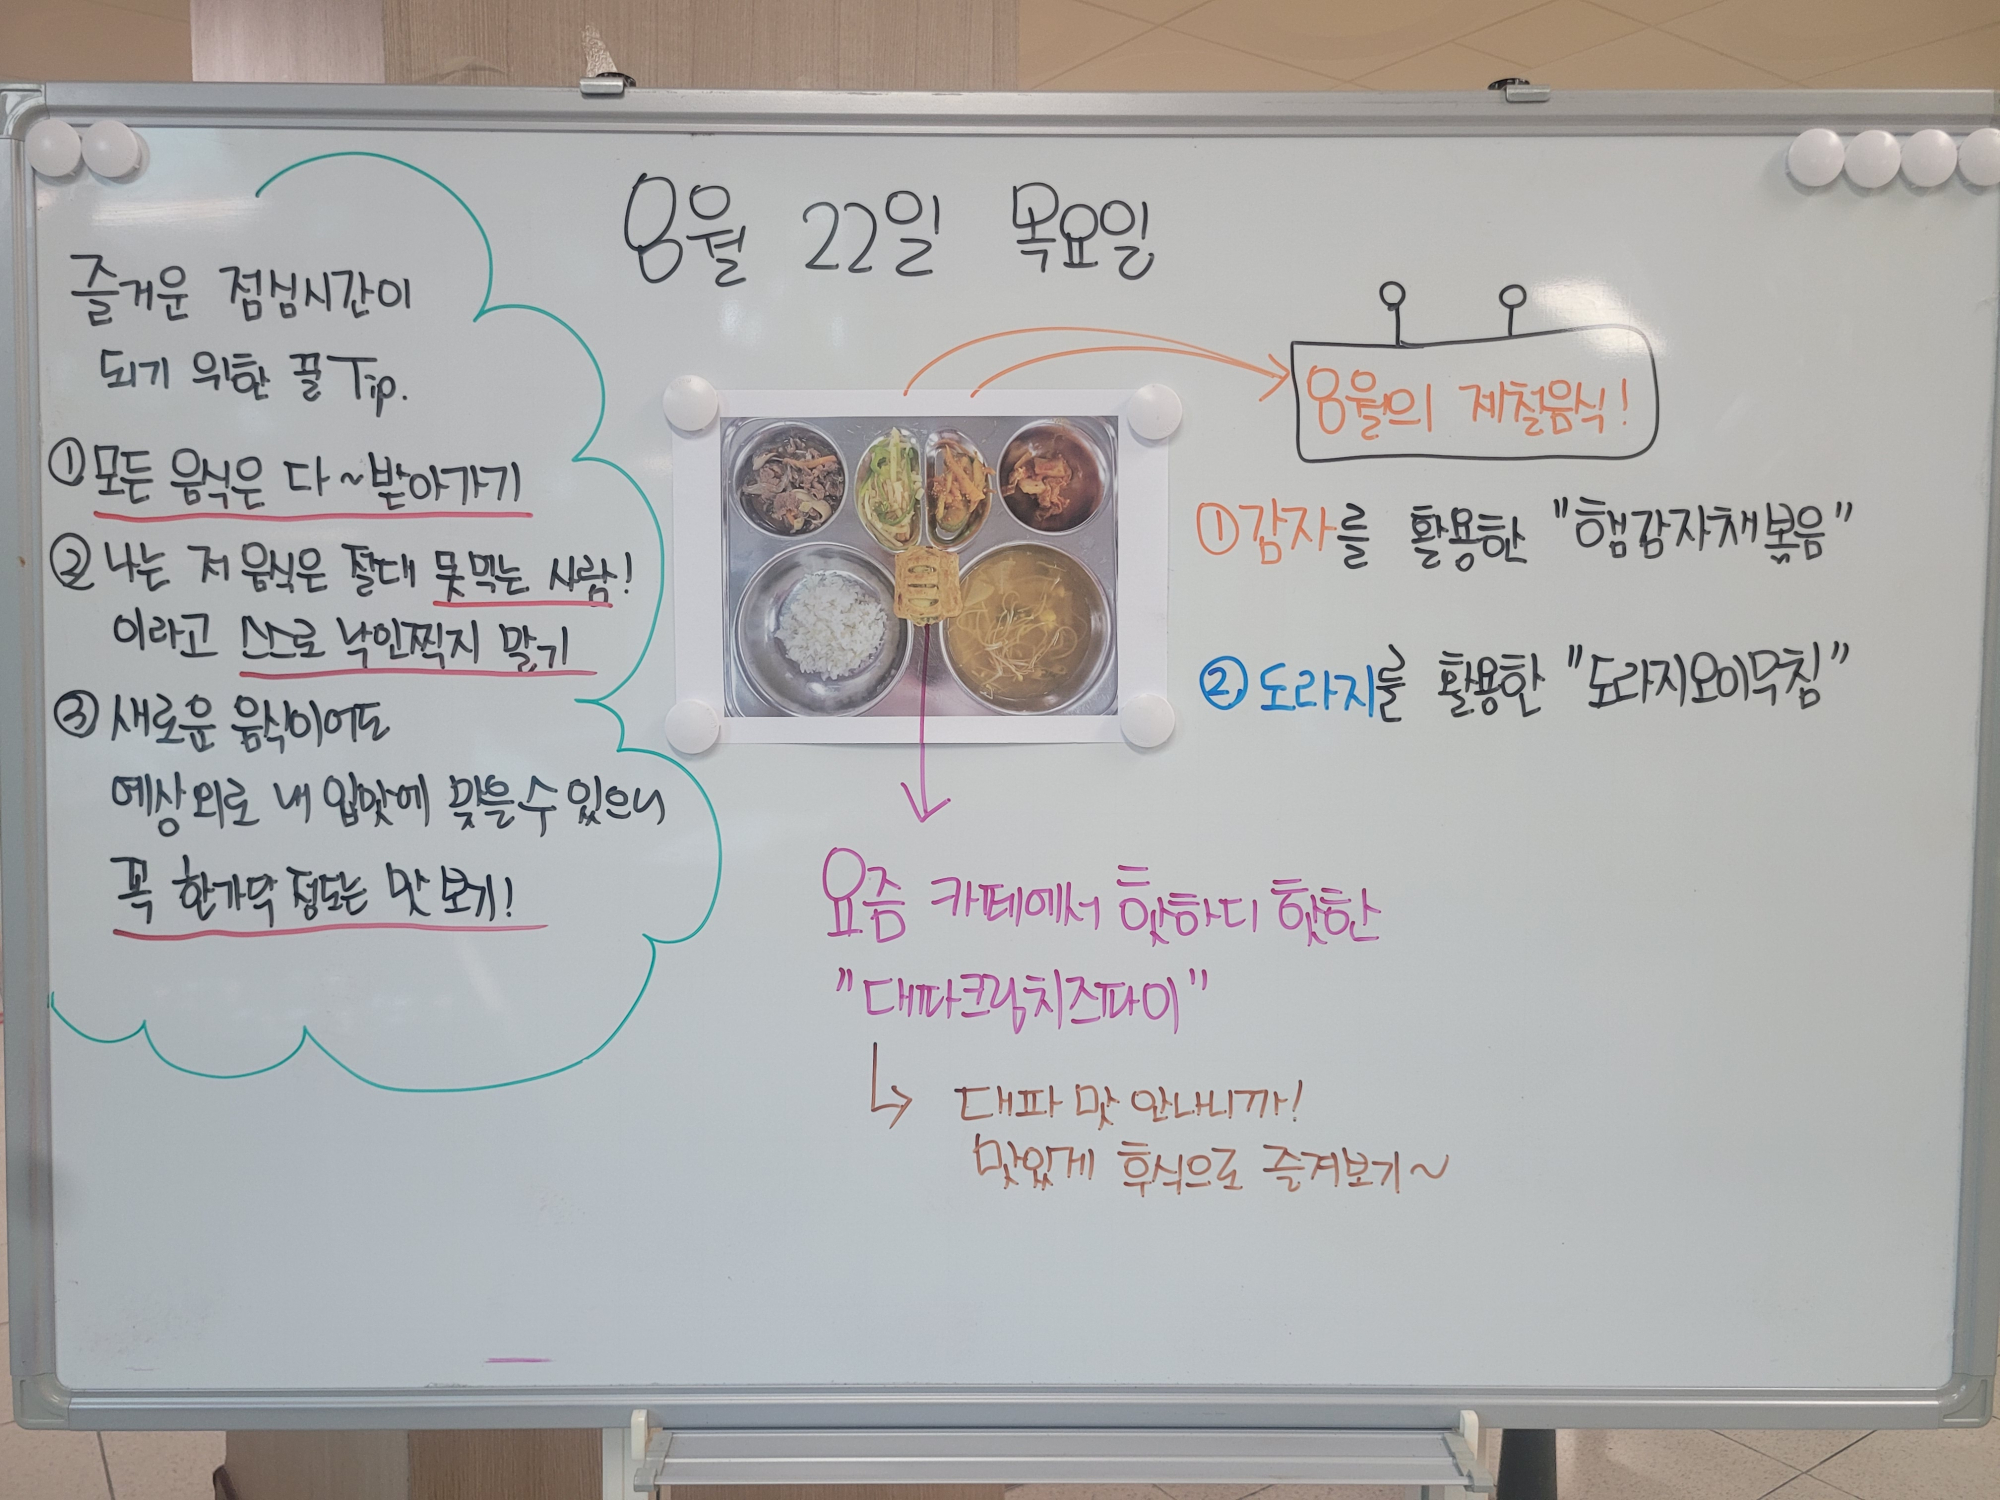 8월 22일 목요일
즐거운 점심시간이
되기 위한 꿀 Tip.
① 모든 음식은 다~받아가기
② 나는 저 음식은 절대 못먹는 사람!
이라고 스스로 낙인찍지 말기
③ 새로운 음식이어도
예상외로 내 입맛에 맞을수 있으니
꼭 한가닥 정도는 맛 보기!
8월의 제철음식!
① 감자를 활용한 "햄감자채볶음"
② 도라지를 활용한 "도라지오이무침"
요즘 카페에서 핫하디 핫한
"대파크림치즈파이"
대파 맛 안나니까!
맛있게 후식으로 즐겨보기~